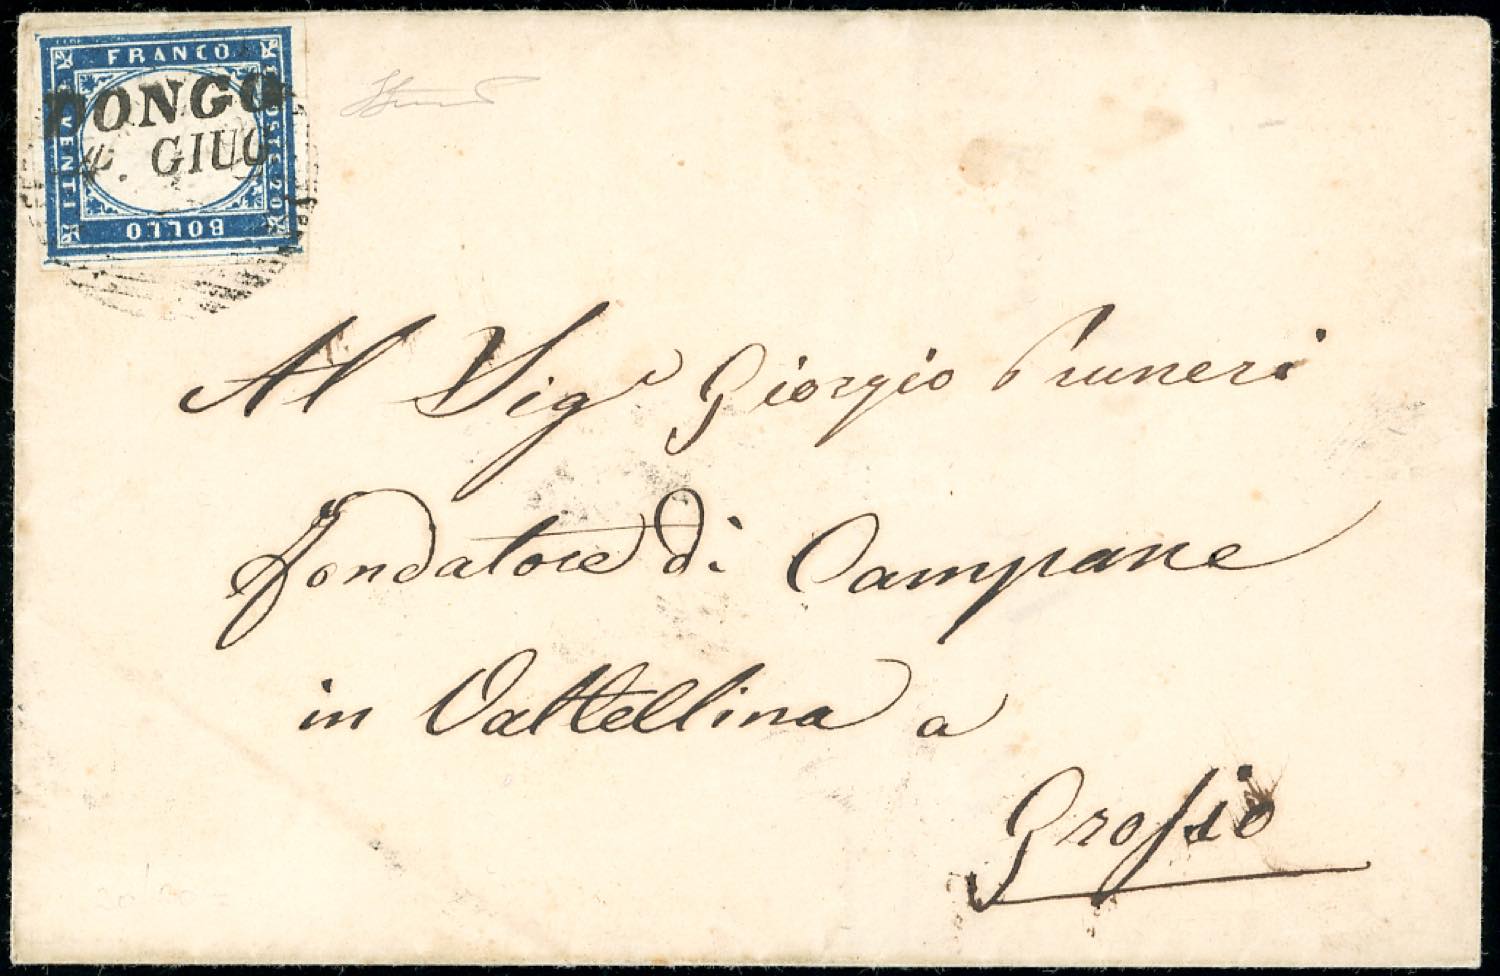 FRANCO
POSTE 20
BOLLO
VENTI
DONGO
GIUG
Al Sig.r Giorgio Pruneri
fondatore di Campane
in Valtellina a
Grosio